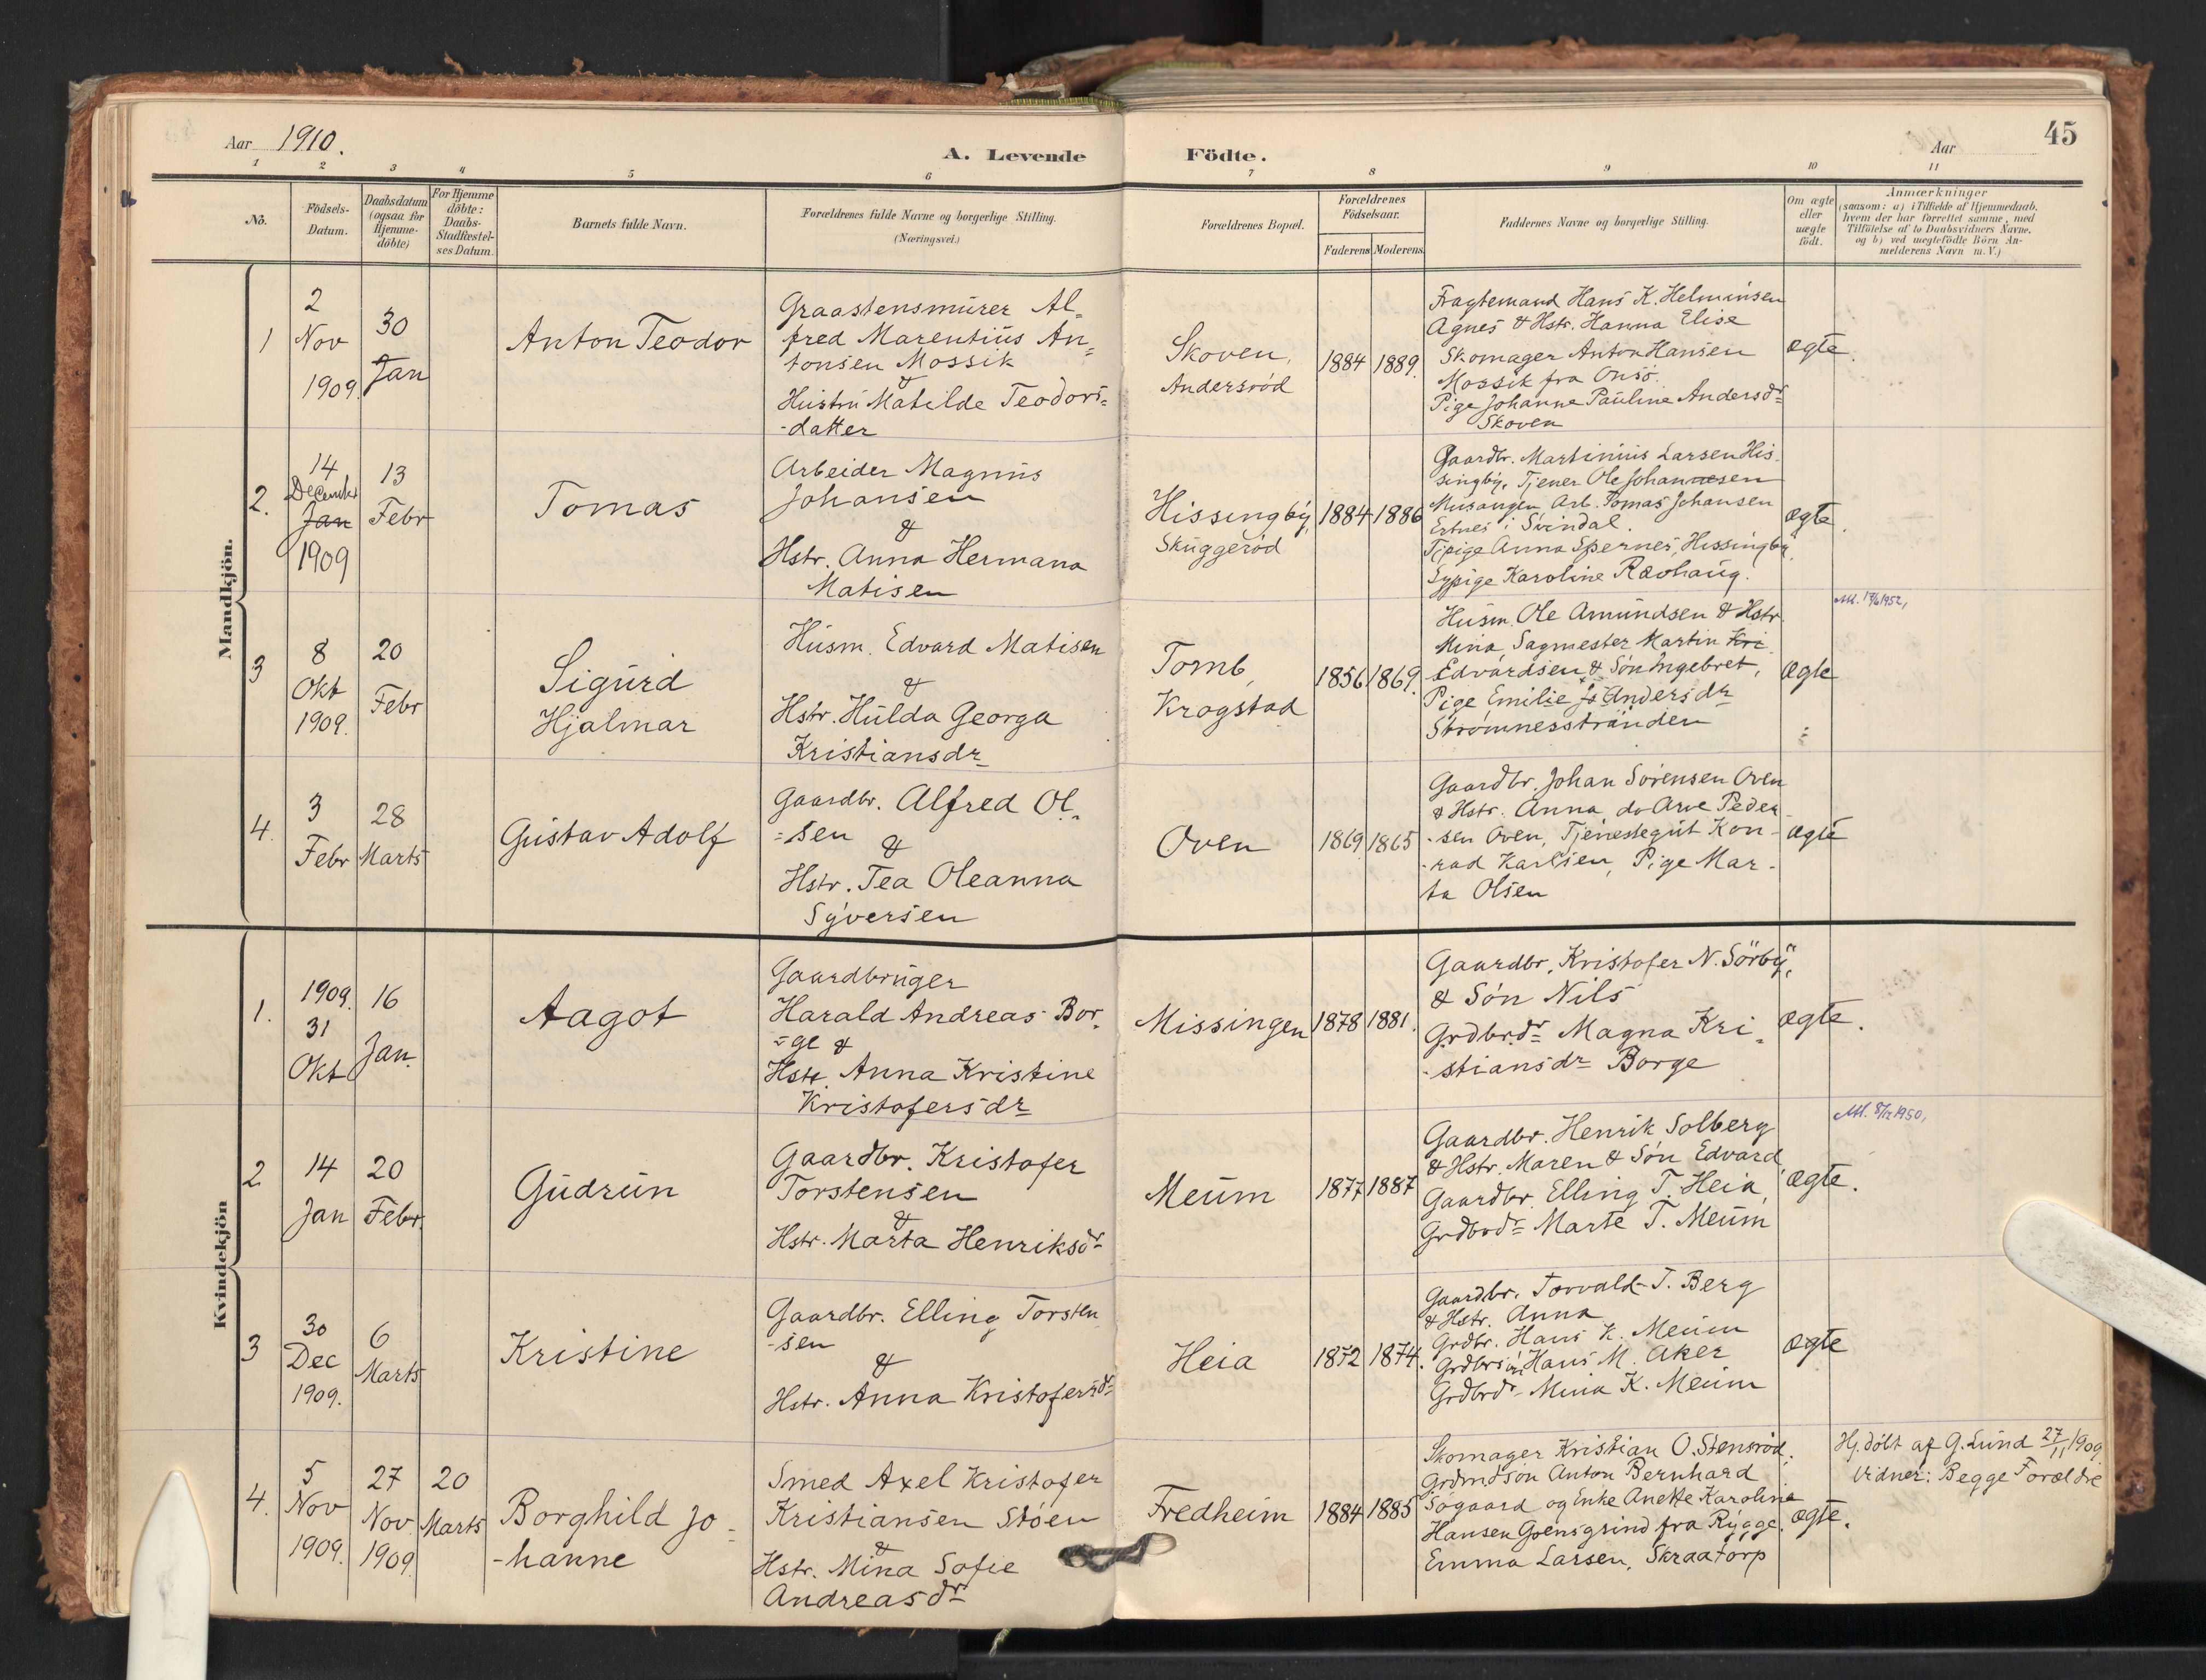 45
Aar 1910.
A. Levende Födte.
Aar
1 2 3 4 5 6 7 8 9 10 11
No.
Födsels-
Datum.
Daabsdatum
(ogsaa for
Hjemme-
döbte)
For Hjemme
döbte:
Daabs-
Stadfæstel-
ses Datum.
Barnets fulde Navn.
Forældrenes fulde Navne og borgerlige Stilling.
(Næringsvei.)
Forældrenes Bopæl.
Forældrenes
Födselsaar.
Faderens Moderens
Faddernes Navne og borgerlige Stilling.
Om ægte
eller
uægte
födt.
Anmærkninger
(saasom: a) i Tilfælde af Hjemmedaab,
hvem der har forrettet samme, med
Tilföielse af to Daabsvidners Navne,
og b) ved uægtefödte Börn An-
melderens Navn m. V.)
Mandkjön.
1
2
Nov
1909
30
Jan
Anton Teodor
Graastensmurer Al-
fred Marentius An-
tonsen Mossik
&
Hustru Matilde Teodors-
-datter
Skoven,
Andersröd
1884 1889.
Fragtemand Hans K. Helminsen
Agnes & Hstr. Hanna Elise
Skomager Anton Hansen
Mossik fra Onsö.
Pige Johanne Pauline Andersdr
Skoven
ægte.
2.
14
Decembr
Jan
1909
13
Febr
Tomas
Arbeider Magnus
Johansen
&
Hstr. Anna Hermana
Matisen
Hissingby,
Skuggeröd
1884 1886
Gaardbr. Martinius Larsen His-
singby, Tjener Ole Johannesen
Musangen Arb. Tomas Johansen
Ertnes i Svindal.
Tjpige Anna Spernes, Hissingby
Sypige Karoline Ravhaug.
ægte.
3
8
Okt
1909.
20
Febr
Sigurd
Hjalmar
Husm. Edvard Matisen
&
Hstr. Hulda Georga
Kristiansdr
Tomb,
Krogstad
1856 1869.
Husm. Ole Amundsen & Hstr.
Mina, Sagmester Martin Kri
Edvardsen & Sön Ingebret,
Pige Emilie Js Andersdr
Strömnesstranden
ægte
4.
3
Febr
28
Marts
Gustav Adolf
Gaardbr. Alfred Ol-
=sen
&
Hstr. Tea Oleanna
Syversen
Oven
1869 1865
Gaardbr. Johan Sörensen Oven
& Hstr. Anna, do Arve Peder
-sen Oven, Tjenestegut Kon-
-rad Karlsen, Pige Mar-
ta Olsen
ægte
Kvindekjön
1.
1909.
31
Okt
16
Jan.
Aagot
Gaardbruger
Harald Andreas Bor-
-ge &
Hstr. Anna Kristine
Kristofersdr
Missingen
1878 1881.
Gaardbr. Kristofer N. Sörby,
& Sön Nils
Grdbrdr Magna Kri-
-stiansdr Borge
ægte.
2
14
Jan
20
Febr.
Gudrun
Gaardbr. Kristofer
Torstensen
&
Hstr. Marta Henriksdr
Meum
1877 1887
Gaardbr. Henrik Solberg
& Hstr. Maren & Sön Edvard,
Gaardbr. Elling T. Heia,
Grdbrdr Marte T. Meum
ægte.
3
30
Dec
1909.
6
Marts
Kristine
Gaardbr. Elling Torsten
-sen
&
Hstr. Anna Kristofersdr
Heia
1872 1874.
Gaardbr. Torvald T. Berg
& Hstr. Anna
Grdbr. Hans K. Meum
Grdbrsön Hans M. Aker
Grdbrdr Mina K. Meum
ægte
4.
5
Nov
1909.
27
Nov
1909.
20
Marts
Borghild Jo-
-hanne
Smed Axel Kristofer
Kristiansen Stöen
&
Hstr. Mina Sofie
Andreasdr
Fredheim
1884 1885
Skomager Kristian O. Stensröd,
Grdmdsön Anton Bernhard
Sögaard og Enke Anette Karoline
Hansen Goensgrind fra Rygge.
Emma Larsen, Skraatorp
ægte.
Hj. döbt af G. Lund 27/11 1909
Vidner: Begge Forældre